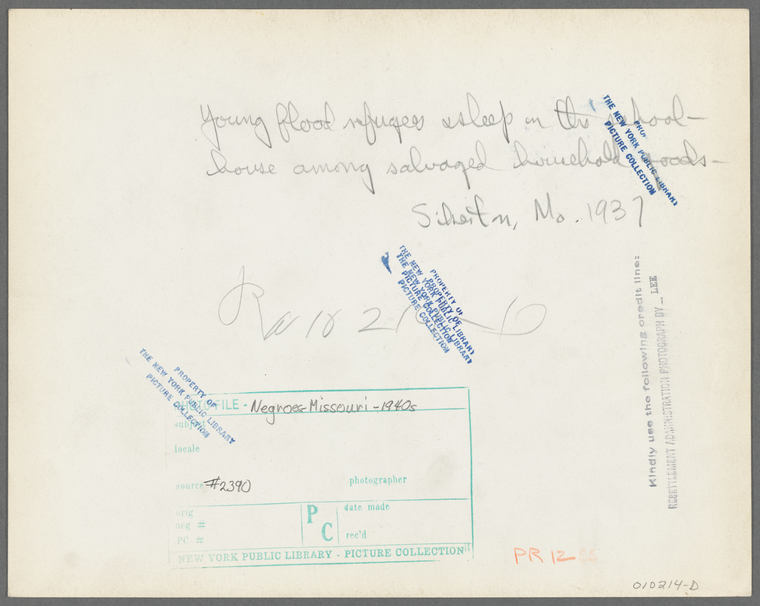 Young flood refugees asleep in the school-
house among salvaged household goods-
Sikeston, Mo. 1937
PROPERTY OF
THE NEW YORK PUBLIC LIBRARY
PICTURE COLLECTION
PROPERTY OF
THE NEW YORK PUBLIC LIBRARY
PICTURE COLLECTION
PROPERTY OF
THE NEW YORK PUBLIC LIBRARY
PICTURE COLLECTION
Kindly use the following credit line:
RESETTLEMENT ADMINISTRATION PHOTOGRAPH BY LEE
PROPERTY OF
THE NEW YORK PUBLIC LIBRARY
PICTURE COLLECTION
FILE - Negroes-Missouri-1940s
subject
locale
source #2390
photographer
orig
neg #
PC #
PC
date made
rec'd
NEW YORK PUBLIC LIBRARY - PICTURE COLLECTION
PR 12
010214-D